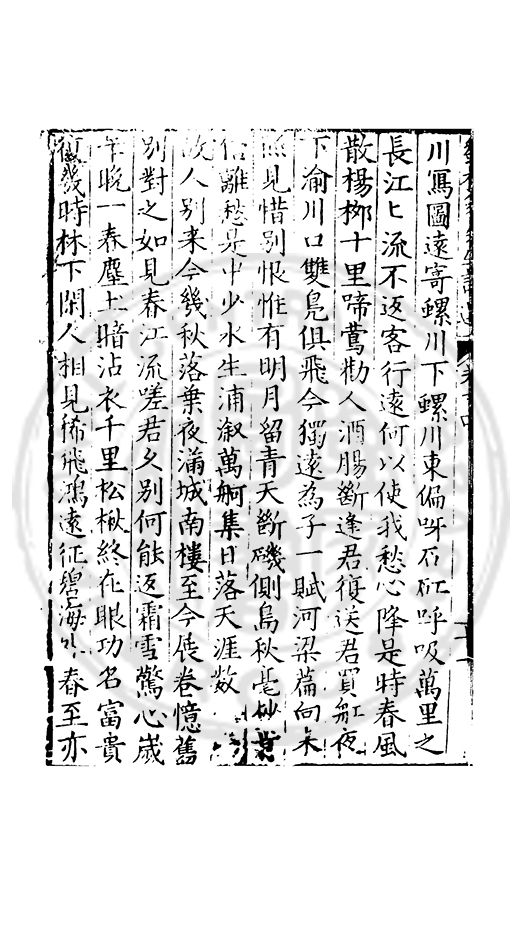 川寫圖遠寄螺川下螺川東偏呀石矼呼吸萬里之
長江匕流不返客行遠何以使我愁心降是時春風
散楊桺十里啼鶯勸人酒腸斷逢君復送君買船夜
下渝川口雙鳧俱飛今獨遠為子一賦河梁篇向來
照見惜别恨惟有明月留青天斷磯側烏秋毫妙
離愁是中少水生浦溆萬舸集日落天涯数
故人别来今幾秋落葉夜滿城南樓至今展卷憶舊
别對之如見春江流嗟君久别何能返霜雪驚心嵗
年晚一春塵土暗沾衣千里松楸終在眼功名富貴
幾時林下閑人相見稀飛鴻遠征碧海外春至亦